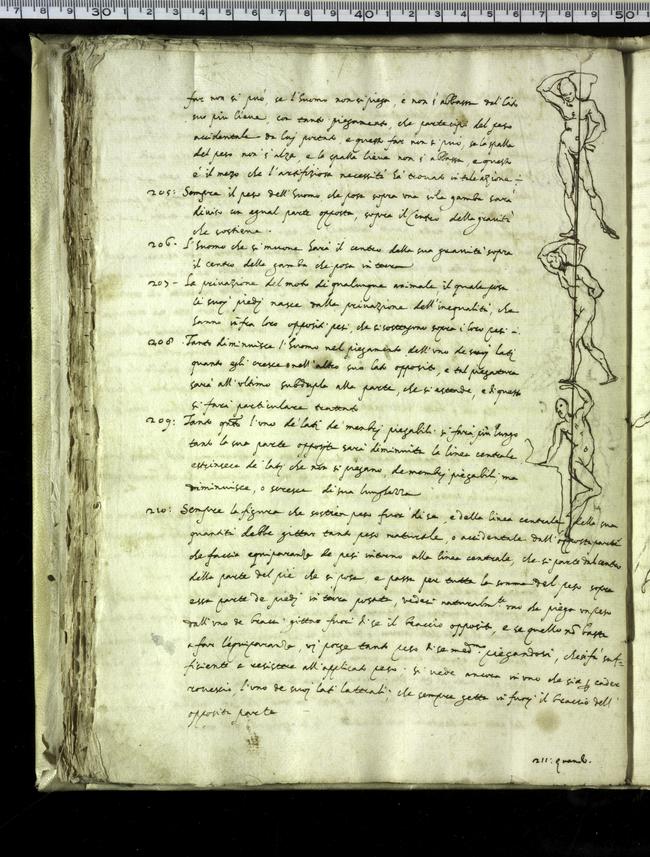 30 40 50
far non si può, se l'huomo non si piega, e non s'abbassa dal lato
suo più lieve, con tanto piegamento, che partecipi del peso
accidentale da lui portato, e questo far non si può, se la spalla
del peso non s'alza, e la spalla lieve non s'abbassa, e questo
è il mezo che l'artifiziosa necessità ha trovato in tale azione
205: Sempre il peso dell'huomo che posa sopra una sola gamba sarà
diviso con egual parte opposta, sopra il centro della gravità
che sostiene.
206. L'huomo che si muove harà il centro della sua gravità sopra
il centro della gamba che posa in terra
207 - La privazione del moto di qualunque animale il quale posa
li suoi piedi nasce dalla privazione dell'inequalità, che
hanno infra loro oppositi pesi, che si sostengono sopra i loro pesi
208. Tanto diminuisce l'huomo nel piegamento dell'uno de suoi lati
quanto egli cresce nell'altro suo lato opposito, e tal piegatura
sarà all'ultimo subdupla alla parte, che si astende, e di questo
si farà particulare trattato
209: Tanto quanto l'uno de' lati de membri piegabili si farà più lungo
tanto la sua parte opposita sarà diminuita la linea centrale
estrinseca de' lati che non si piegano de membri piegabili mai
diminuisce, o accresce di sua lunghezza
210: Sempre la figura che sostien peso fuori di sé, e della linea centrale della sua
quantità debbe gittar tanto peso naturale, o accidentale dall'opposita parte
che faccia equiparanza de pesi intorno alla linea centrale, che si parte dal centro
della parte del piè che si posa, e passa per tutta la somma del peso sopra
essa parte de piedi in terra posata, vedesi naturalmte uno che piega un peso
dall'uno de bracci gittar fuori di sé il braccio opposito, e se quello nõ basta
a far l'equiparanza, vi porge tanto peso di se medmo piegandosi, che si fa suf=
fisiente a resistere all'applicato peso. si vede ancora in uno che sia p cader
rovescio, l'uno de suoi lati laterali, che sempre getta in fuori il braccio dell'
opposita parte
211: quando.